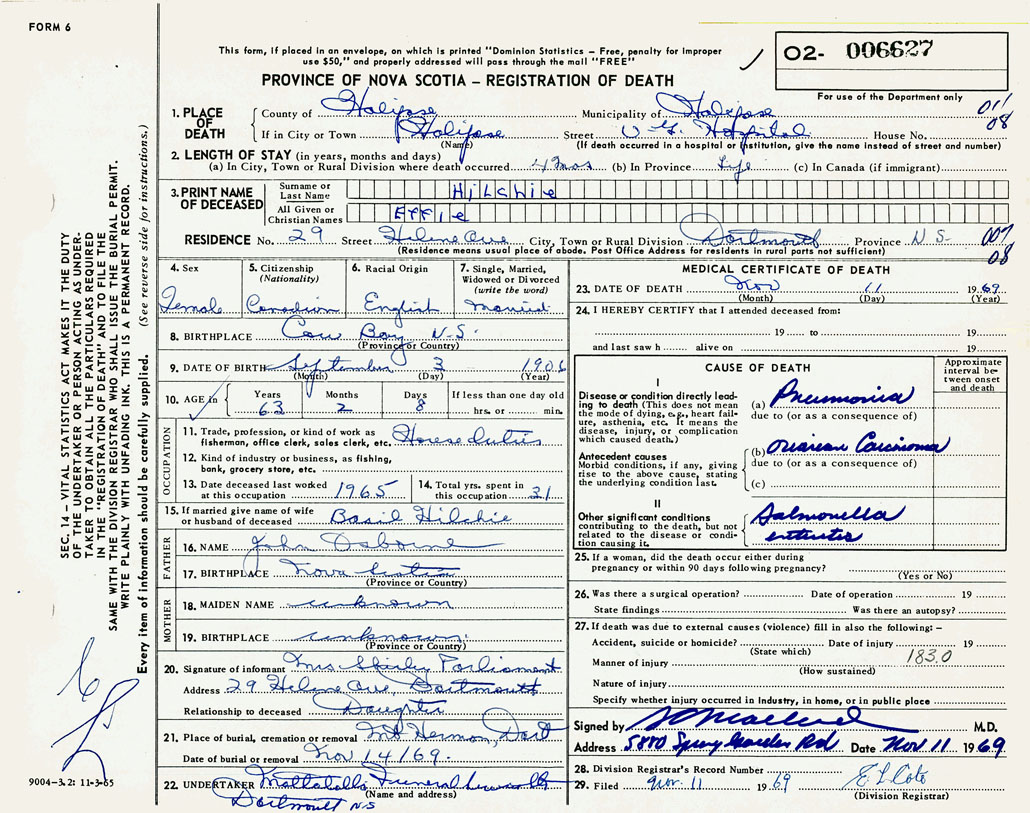 FORM 6
This form, if placed in an envelope, on which is printed "Dominion Statistics – Free, penalty for improper
use $50," and properly addressed will pass through the mail "FREE"
O2- 006627
For use of the Department only
PROVINCE OF NOVA SCOTIA – REGISTRATION OF DEATH
011
08
1. PLACE OF DEATH
County of Halifax Municipality of Halifax
If in City or Town Halifax Street V. G. Hospital House No.
(Name) (If death occurred in a hospital or institution, give the name instead of street and number)
2. LENGTH OF STAY (in years, months and days)
(a) In City, Town or Rural Division where death occurred 4 mos (b) In Province Life (c) In Canada (if immigrant)
3. PRINT NAME OF DECEASED
Surname or Last Name Hilchie
All Given or Christian Names Effie
RESIDENCE No. 29 Street Helene Ave City, Town or Rural Division Dartmouth Province N.S. 007
08
(Residence means usual place of abode. Post Office Address for residents in rural parts not sufficient)
4. Sex Female
5. Citizenship (Nationality) Canadian
6. Racial Origin English
7. Single, Married, Widowed or Divorced (write the word) Married
8. BIRTHPLACE Cow Bay N.S.
(Province or Country)
9. DATE OF BIRTH September 3 1906
(Month) (Day) (Year)
10. AGE in Years 63 Months 2 Days 8 If less than one day old
hrs. or min.
OCCUPATION
11. Trade, profession, or kind of work as
fisherman, office clerk, sales clerk, etc. House duties
12. Kind of industry or business, as fishing,
bank, grocery store, etc.
13. Date deceased last worked
at this occupation 1965
14. Total yrs. spent in
this occupation 31
15. If married give name of wife
or husband of deceased Basil Hilchie
FATHER
16. NAME John Osborne
17. BIRTHPLACE Nova Scotia
(Province or Country)
MOTHER
18. MAIDEN NAME unknown
19. BIRTHPLACE unknown
(Province or Country)
20. Signature of informant Mrs Shirley Parliament
Address 29 Helene Ave, Dartmouth
Relationship to deceased Daughter
21. Place of burial, cremation or removal Mt Hermon, Dart
Date of burial or removal Nov 14/69.
22. UNDERTAKER Mattatalls Funeral
(Name and address)
Dartmouth N.S
MEDICAL CERTIFICATE OF DEATH
23. DATE OF DEATH Nov 11 1969
(Month) (Day) (Year)
24. I HEREBY CERTIFY that I attended deceased from:
19 to 19
and last saw h alive on 19
CAUSE OF DEATH
Approximate interval between onset and death
I
Disease or condition directly leading to death (This does not mean the mode of dying, e.g., heart failure, asthenia, etc. It means the disease, injury, or complication which caused death.)
(a) Pneumonia
due to (or as a consequence of)
Antecedent causes
Morbid conditions, if any, giving rise to the above cause, stating the underlying condition last.
(b) Ovarian Carcinoma
due to (or as a consequence of)
(c)
II
Other significant conditions
contributing to the death, but not related to the disease or condition causing it.
Salmonella
enteritis
25. If a woman, did the death occur either during
pregnancy or within 90 days following pregnancy?
(Yes or No)
26. Was there a surgical operation? Date of operation 19
State findings Was there an autopsy?
27. If death was due to external causes (violence) fill in also the following: –
Accident, suicide or homicide? Date of injury 19
(State which)
183.0
Manner of injury
(How sustained)
Nature of injury
Specify whether injury occurred in Industry, in home, or in public place
Signed by M.D.
Address 5880 Spring Garden Rd Date Nov 11 1969
28. Division Registrar's Record Number
29. Filed Nov. 11 1969
(Division Registrar)
SEC. 14 – VITAL STATISTICS ACT MAKES IT THE DUTY
OF THE UNDERTAKER OR PERSON ACTING AS UNDER-
TAKER TO OBTAIN ALL THE PARTICULARS REQUIRED
IN THE "REGISTRATION OF DEATH" AND TO FILE THE
SAME WITH THE DIVISION REGISTRAR WHO SHALL ISSUE THE BURIAL PERMIT.
WRITE PLAINLY WITH UNFADING INK. THIS IS A PERMANENT RECORD.
Every item of information should be carefully supplied. (See reverse side for instructions.)
9004-3.2: 11-3-65